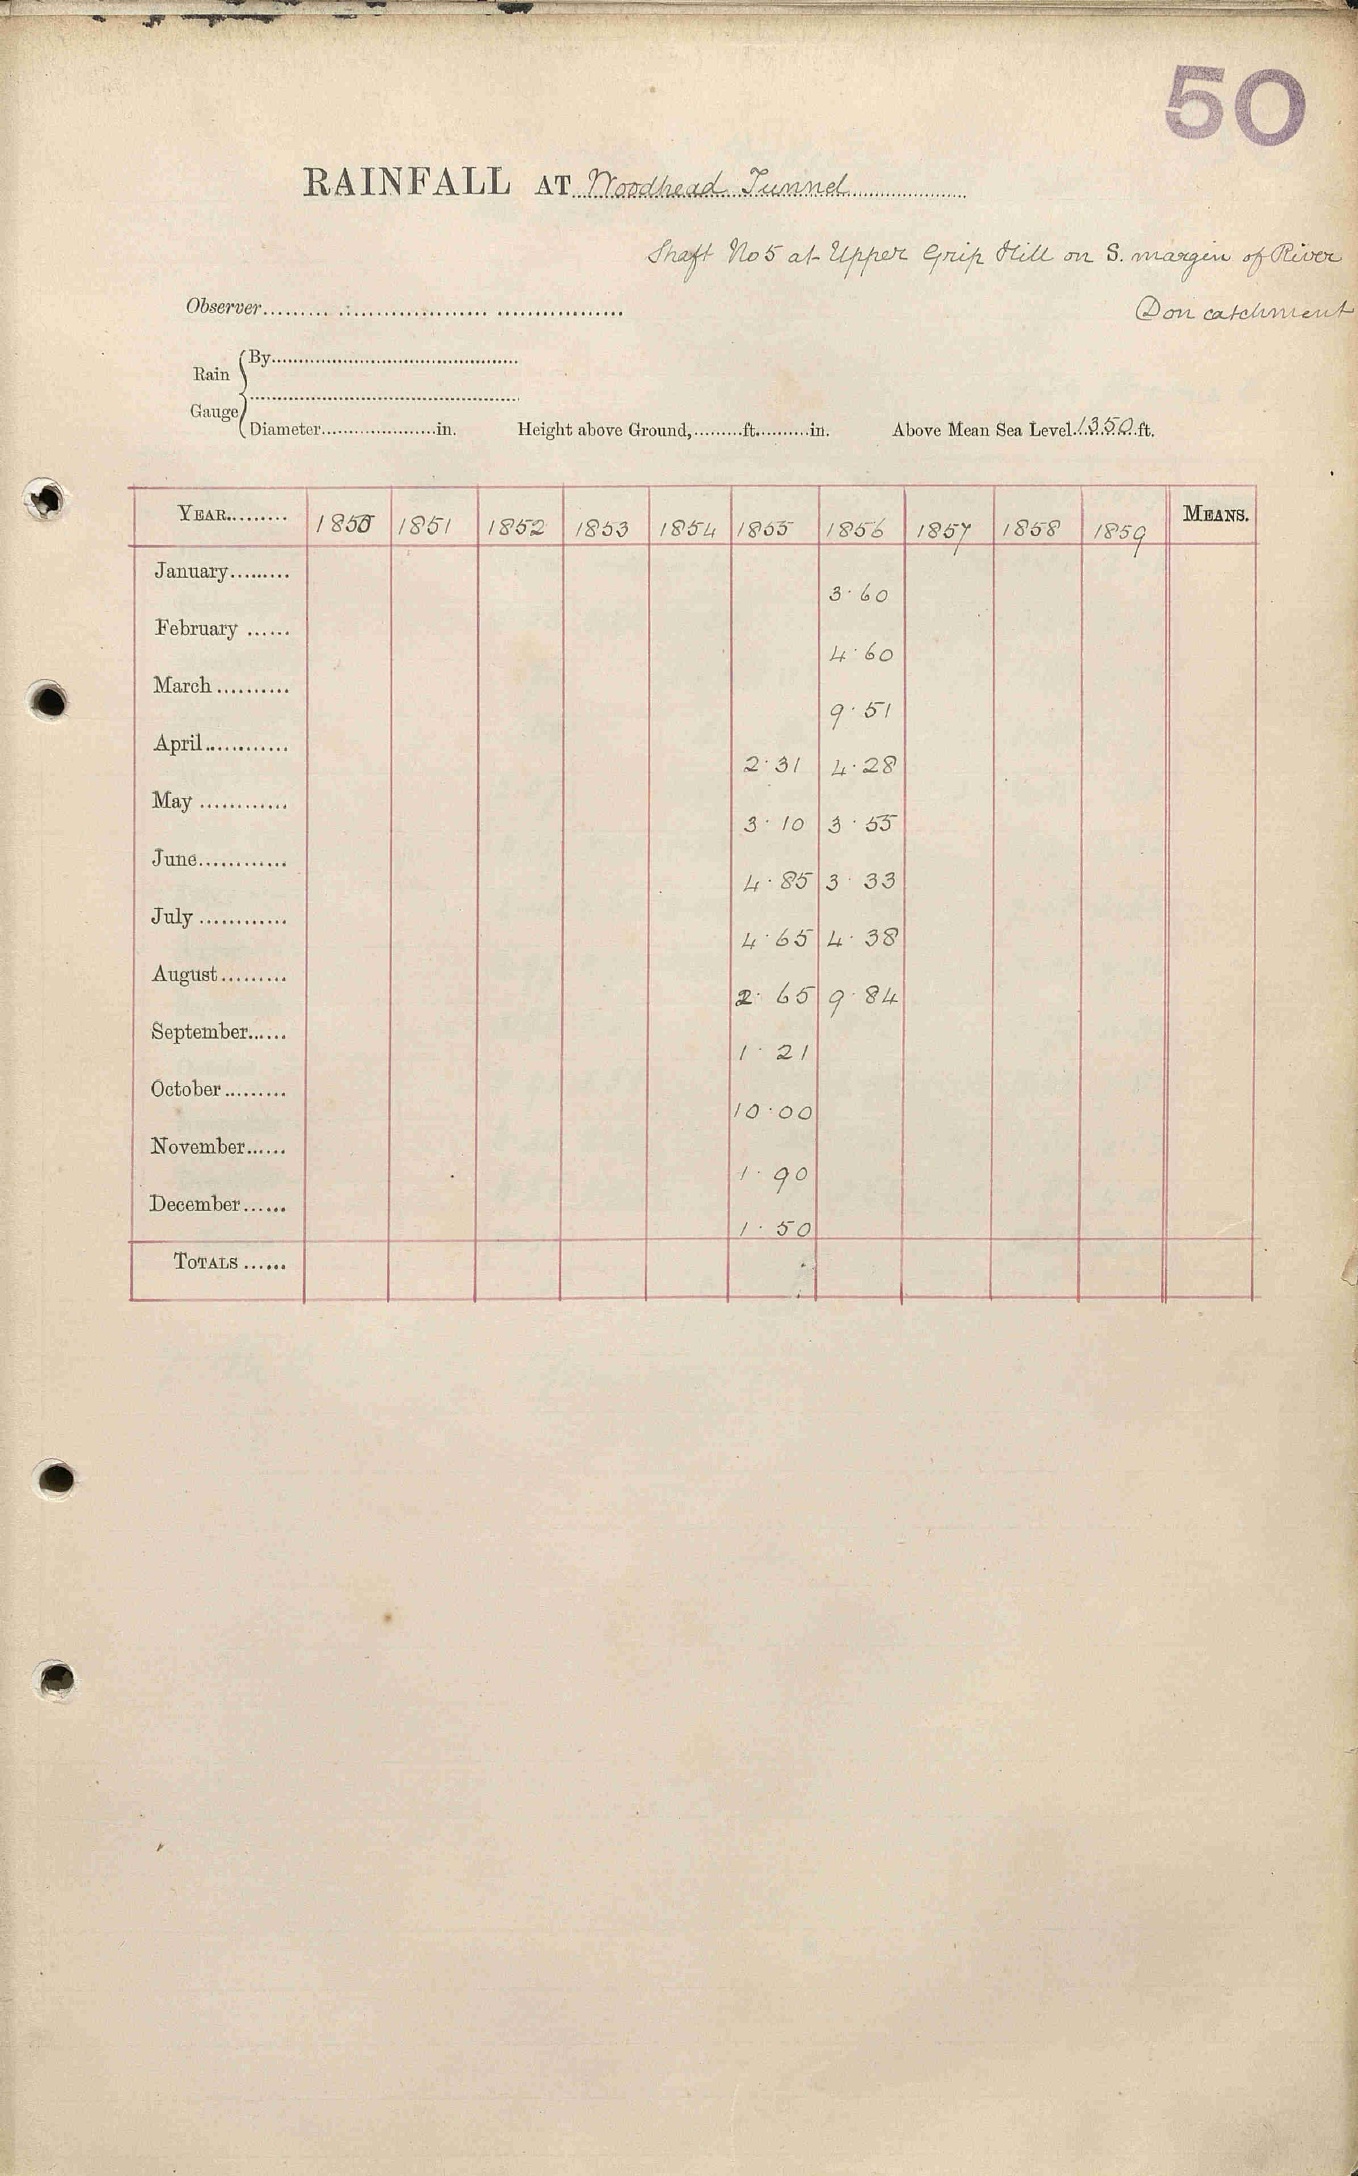 50
RAINFALL AT Woodhead Tunnel
Shaft No 5 at Upper Grip Hill on S. margin of River
Don catchment
Observer
Rain Gauge
By
Diameter in. Height above Ground, ft. in. Above Mean Sea Level 1350 ft.
YEAR 1850 1851 1852 1853 1854 1855 1856 1857 1858 1859 MEANS.
January 3·60
February 4·60
March 9·51
April 2·31 4·28
May 3·10 3·55
June 4·85 3·33
July 4·65 4·38
August 2·65 9·84
September 1·21
October 10·00
November 1·90
December 1·50
TOTALS